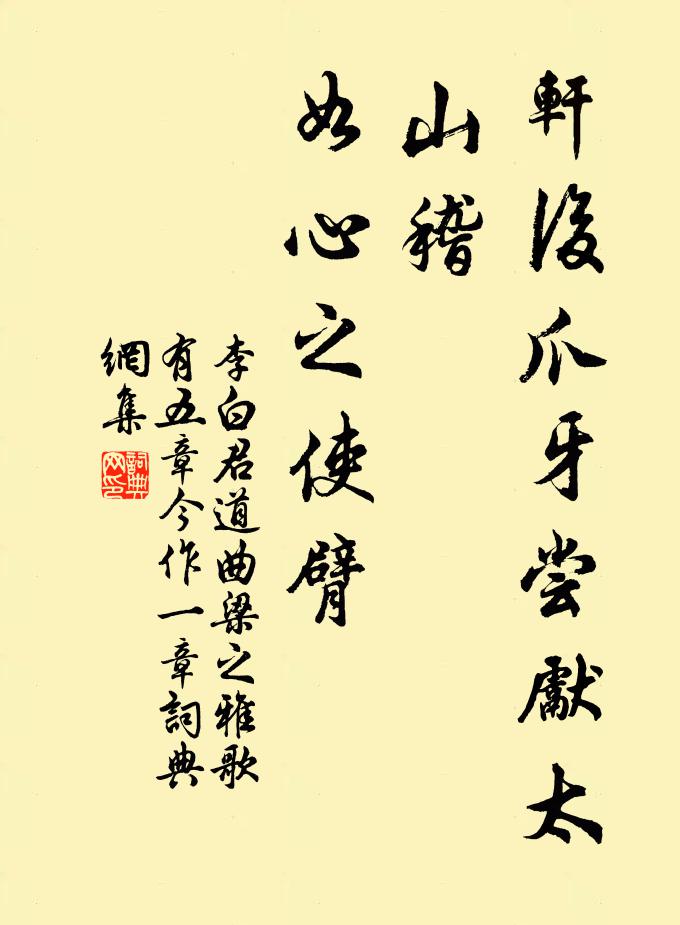 軒後爪牙尝獻太
山稽
如心之使臂
李白君道曲梁之雅歌
有五章今作一章詞典
網集
詞典
网印